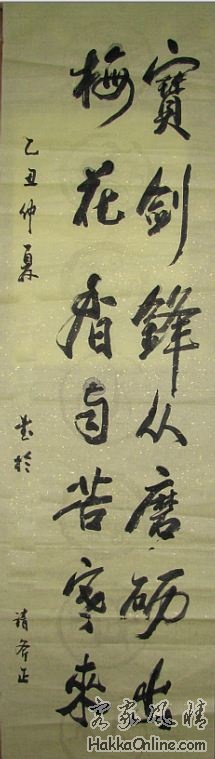 寶劍鋒从磨砺出
梅花香自苦寒來
乙丑仲夏
書於
請斧正
客家風情
HakkaOnline.com